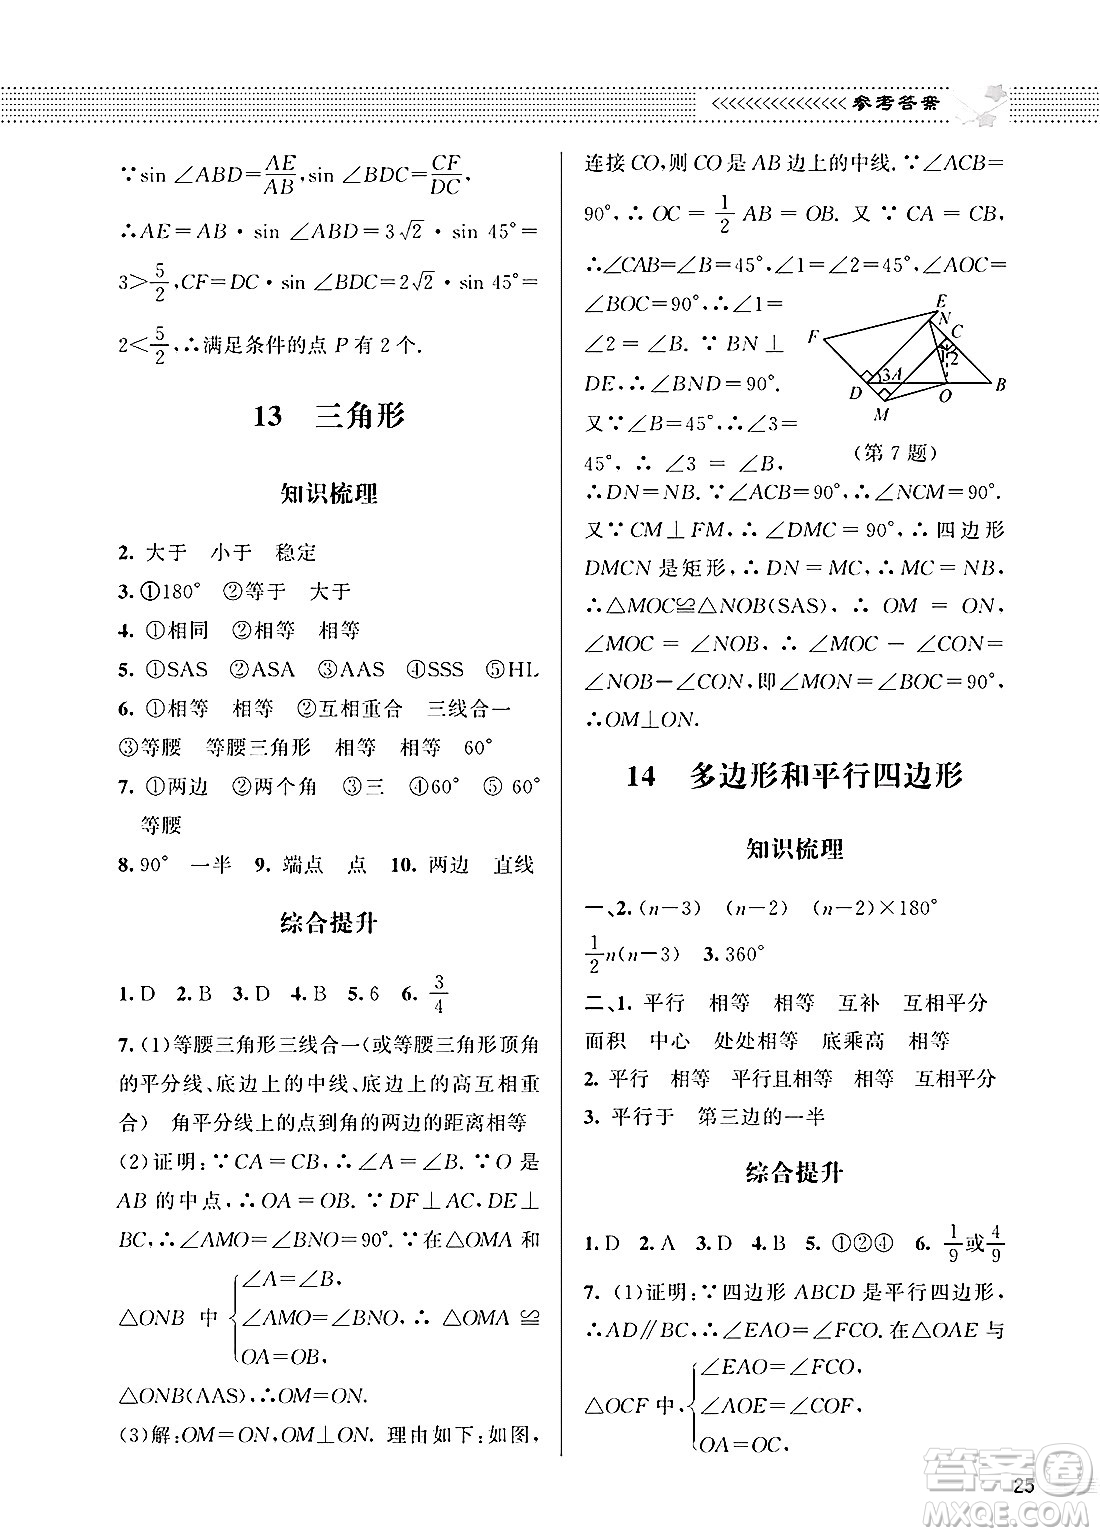 参考答案
∵sin ∠ABD=AE/AB,sin ∠BDC=CF/DC,
∴AE=AB·sin ∠ABD=3√2·sin 45°=
3>5/2,CF=DC·sin ∠BDC=2√2·sin 45°=
2<5/2,∴满足条件的点 P 有 2 个.
13 三角形
知识梳理
2. 大于 小于 稳定
3. ①180° ②等于 大于
4. ①相同 ②相等 相等
5. ①SAS ②ASA ③AAS ④SSS ⑤HL
6. ①相等 相等 ②互相重合 三线合一
③等腰 等腰三角形 相等 相等 60°
7. ①两边 ②两个角 ③三 ④60° ⑤60°
等腰
8. 90° 一半 9. 端点 点 10. 两边 直线
综合提升
1. D 2. B 3. D 4. B 5. 6 6. 3/4
7. (1)等腰三角形三线合一(或等腰三角形顶角
的平分线、底边上的中线、底边上的高互相重
合) 角平分线上的点到角的两边的距离相等
(2)证明:∵CA=CB,∴∠A=∠B.∵O 是
AB 的中点,∴OA=OB.∵DF⊥AC,DE⊥
BC,∴∠AMO=∠BNO=90°.∵在△OMA 和
△ONB 中{∠A=∠B,
∠AMO=∠BNO,∴△OMA≌
OA=OB,
△ONB(AAS),∴OM=ON.
(3)解:OM=ON,OM⊥ON. 理由如下:如图,
连接 CO,则 CO 是 AB 边上的中线.∵∠ACB=
90°,∴OC=1/2 AB=OB. 又∵CA=CB,
∴∠CAB=∠B=45°,∠1=∠2=45°,∠AOC=
∠BOC=90°,∴∠1=
∠2=∠B.∵BN⊥
DE,∴∠BND=90°.
又∵∠B=45°,∴∠3=
45°,∴∠3=∠B,
F E N C 1 2 D 3 A O B M
(第 7 题)
∴DN=NB.∵∠ACB=90°,∴∠NCM=90°.
又∵CM⊥FM,∴∠DMC=90°,∴四边形
DMCN 是矩形,∴DN=MC,∴MC=NB,
∴△MOC≌△NOB(SAS),∴OM=ON,
∠MOC=∠NOB,∴∠MOC-∠CON=
∠NOB-∠CON,即∠MON=∠BOC=90°,
∴OM⊥ON.
14 多边形和平行四边形
知识梳理
一、2. (n-3) (n-2) (n-2)×180°
1/2 n(n-3) 3. 360°
二、1. 平行 相等 相等 互补 互相平分
面积 中心 处处相等 底乘高 相等
2. 平行 相等 平行且相等 相等 互相平分
3. 平行于 第三边的一半
综合提升
1. D 2. A 3. D 4. B 5. ①②④ 6. 1/9或4/9
7. (1)证明:∵四边形 ABCD 是平行四边形,
∴AD∥BC,∴∠EAO=∠FCO.在△OAE 与
△OCF 中,{∠EAO=∠FCO,
∠AOE=∠COF,
OA=OC,
25
答案卷
MXQE.COM